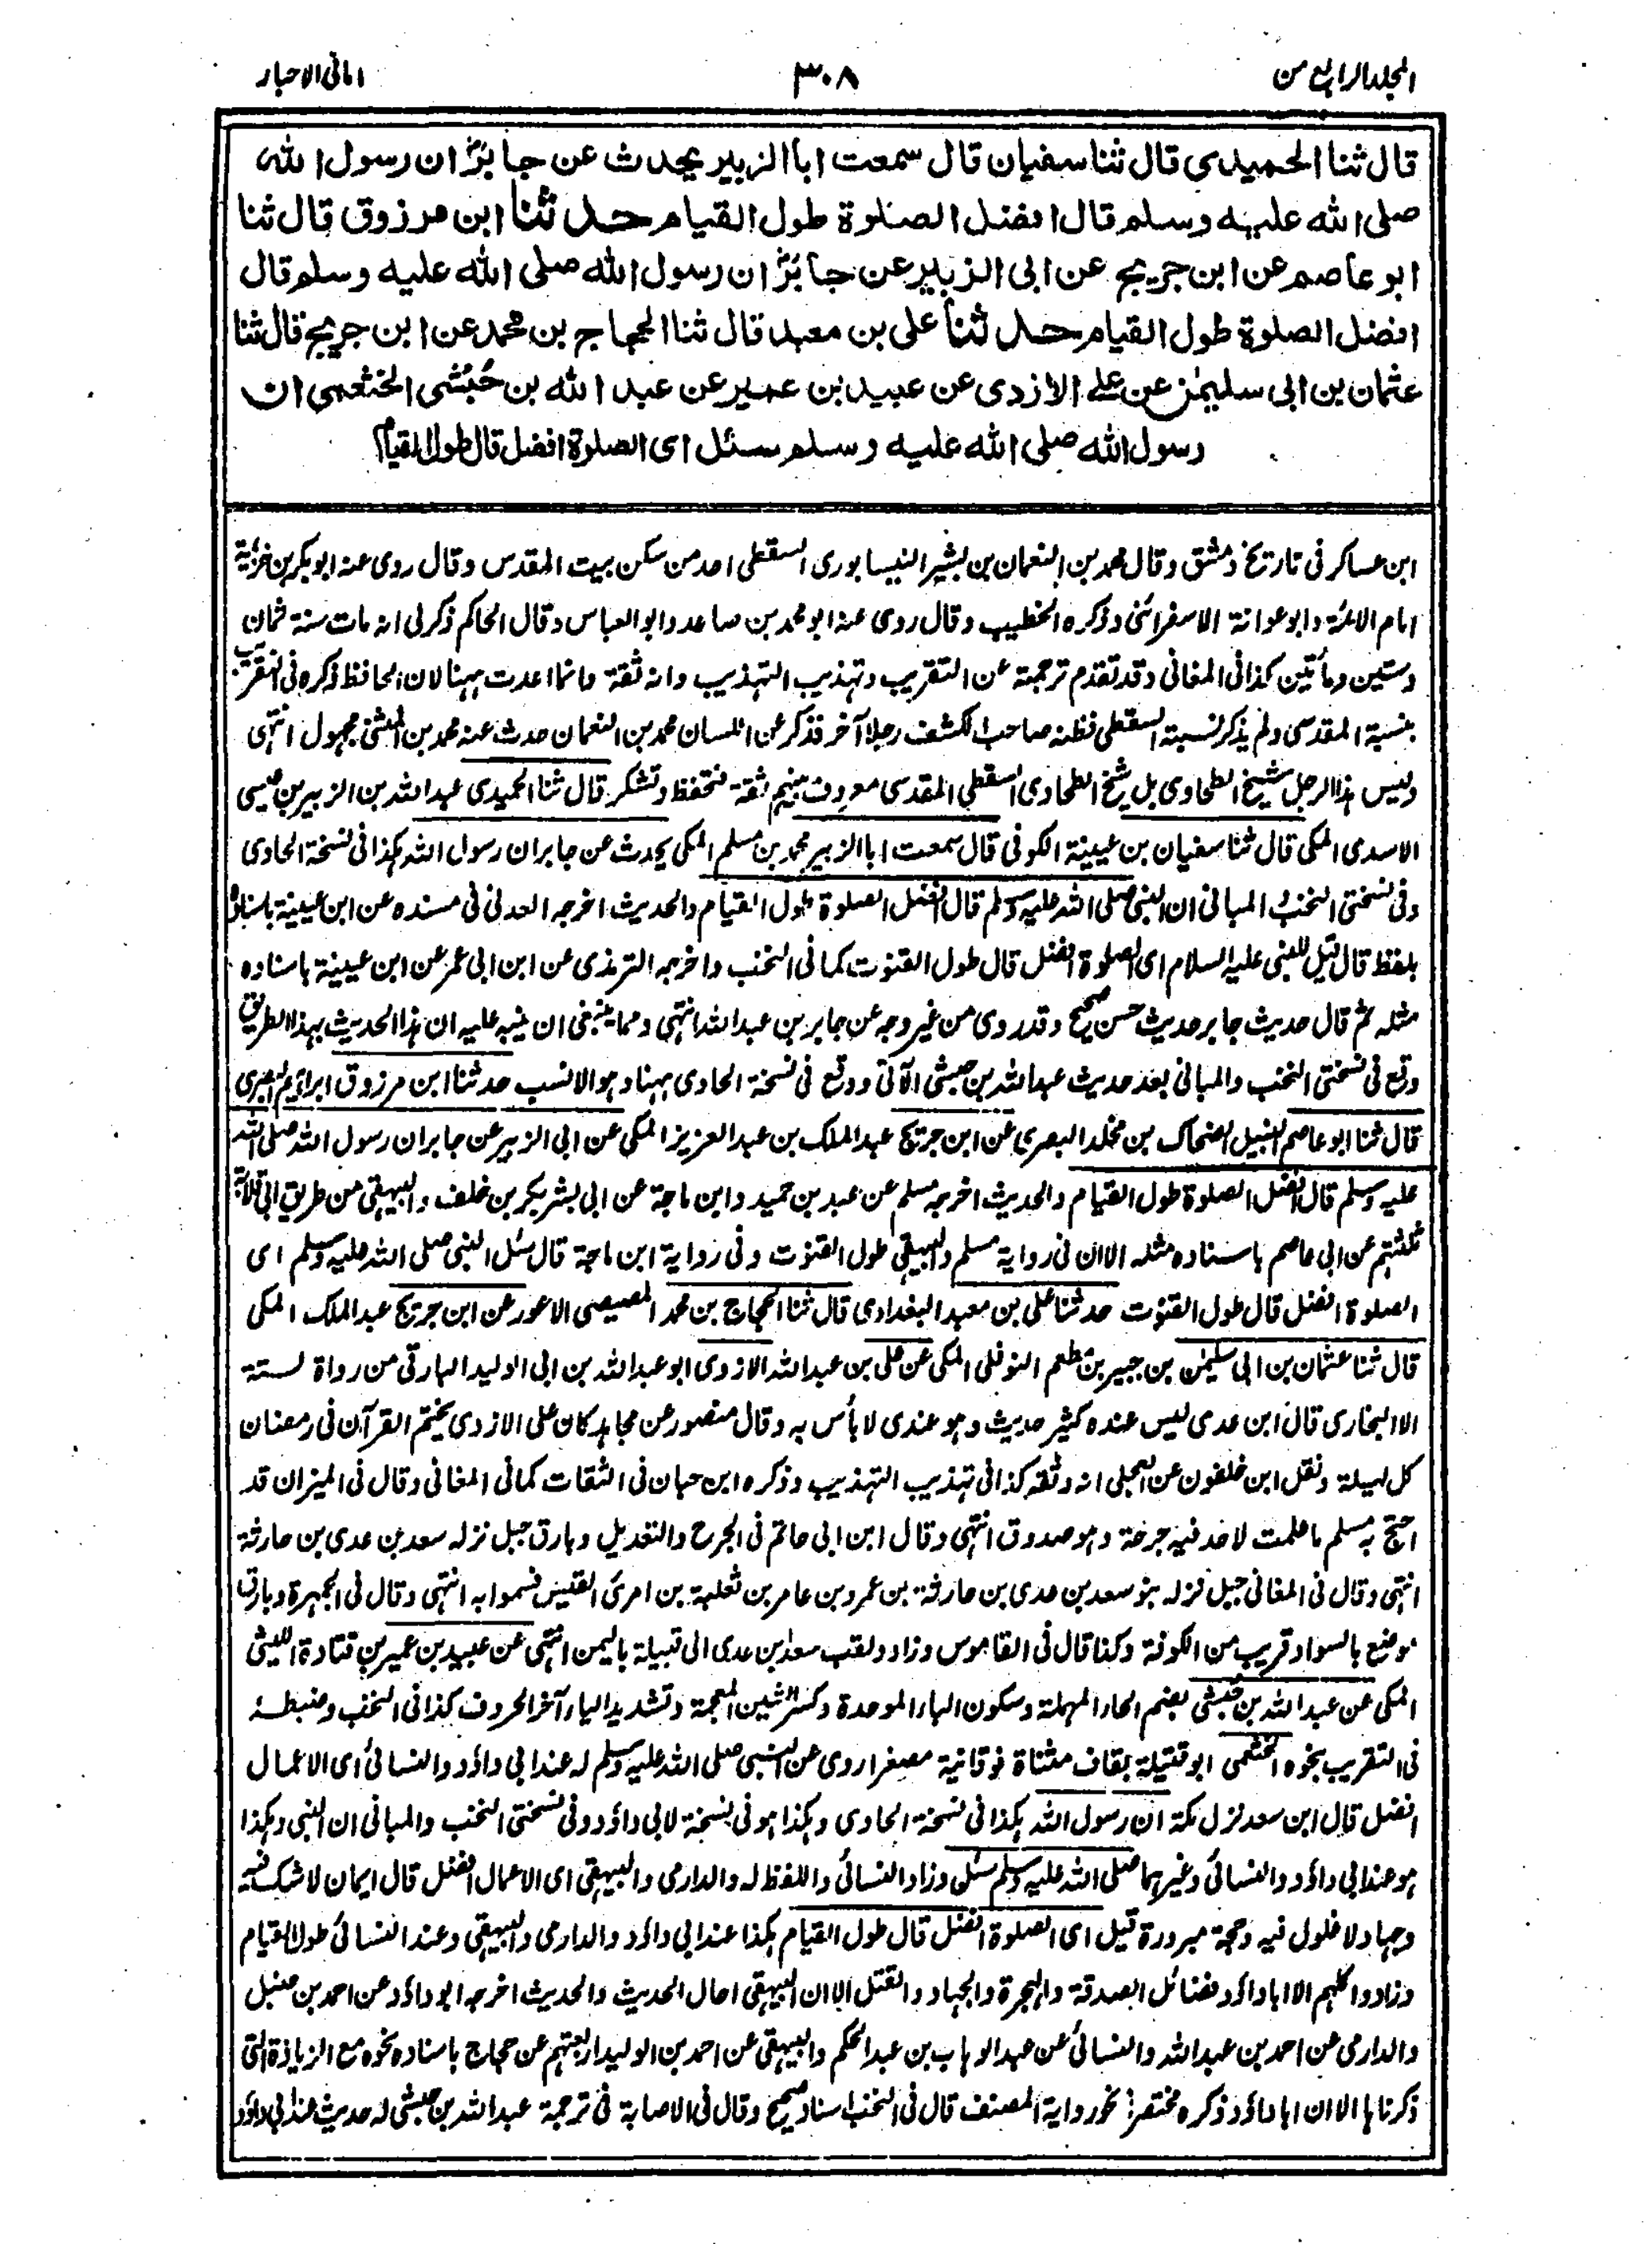 المجلد الرابع من
٣٠٨
امانى الاحبار
قال ثنا الحميدى قال ثنا سفيان قال سمعت ابا الزبير يحدث عن جابرؓ ان رسول الله
صلى الله عليه وسلم قال افضل الصلوة طول القيام حدثنا ابن مرزوق قال ثنا
ابو عاصم عن ابن جريج عن ابى الزبير عن جابرؓ ان رسول الله صلى الله عليه وسلم قال
افضل الصلوة طول القيام حدثنا على بن معبد قال ثنا الحجاج بن محمد عن ابن جريج قال ثنا
عثمان بن ابى سليمٰن عن على الازدى عن عبيد بن عمير عن عبد الله بن حُبْشى الخثعمى ان
رسول الله صلى الله عليه وسلم سئل اى الصلوة افضل قال طول القيام
ابن عساكر فى تاريخ دمشق وقال محمد بن النعمان بن بشير النيسابورى السقطى احد من سكن بيت المقدس وقال روى عنه ابو بكر بن خزيمة
امام الائمة وابو عوانة الاسفرائنى وذكره الخطيب وقال روى عنه ابو محمد بن صاعد وابو العباس وقال الحاكم ذكر لى انه مات سنة ثمان
وستين ومأتين كذا فى المغانى وقد تقدم ترجمة عن التقريب وتهذيب التهذيب وانه ثقة وانما اعدت ههنا لان الحافظ ذكره فى التقريب
بنسبة المقدسى ولم يذكر نسبة السقطى فظنه صاحب الكشف رجلا آخر فذكر عن اللسان محمد بن النعمان حدث عنه محمد بن المثنى مجهول انتهى
وليس هذا الرجل شيخ الطحاوى بل شيخ الطحاوى السقطى المقدسى معروف بينهم ثقة فتحفظ وتشكر قال ثنا الحميدى عبد الله بن الزبير بن عيسى
الاسدى المكى قال ثنا سفيان بن عيينة الكوفى قال سمعت ابا الزبير محمد بن مسلم المكى يحدث عن جابر ان رسول الله هكذا فى نسخة الحاوى
وفى نسختى النخب والمبانى ان النبى صلى الله عليه وسلم قال افضل الصلوة طول القيام والحديث اخرجه العدنى فى مسنده عن ابن عيينة باسناده
بلفظ قال قيل للنبى عليه السلام اى الصلوة افضل قال طول القنوت كما فى النخب واخرجه الترمذى عن ابن ابى عمر عن ابن عيينة باسناده
مثله ثم قال حديث جابر حديث حسن صحيح وقد روى من غير وجه عن جابر بن عبد الله انتهى ومما ينبغى ان ينبه عليه ان هذا الحديث بهذا الطريق
وقع فى نسختى النخب والمبانى بعد حديث عبد الله بن حبشى الآتى ووقع فى نسخة الحاوى ههنا وهو الانسب حدثنا ابن مرزوق ابراهيم البصرى
قال ثنا ابو عاصم النبيل الضحاك بن مخلد البصرى عن ابن جريج عبد الملك بن عبد العزيز المكى عن ابى الزبير عن جابر ان رسول الله صلى الله
عليه وسلم قال افضل الصلوة طول القيام والحديث اخرجه مسلم عن عبد بن حميد وابن ماجة عن ابى بشر بكر بن خلف والبيهقى من طريق ابى قلابة
ثلثتهم عن ابى عاصم باسناده مثله الا ان فى رواية مسلم والبيهقى طول القنوت وفى رواية ابن ماجة قال سئل النبى صلى الله عليه وسلم اى
الصلوة افضل قال طول القنوت حدثنا على بن معبد البغدادى قال ثنا الحجاج بن محمد المصيصى الاعور عن ابن جريج عبد الملك المكى
قال ثنا عثمان بن ابى سليمٰن بن جبير بن مطعم النوفلى المكى عن على بن عبد الله الازدى ابو عبد الله بن ابى الوليد البارقى من رواة لستة
الا البخارى قال ابن عدى ليس عنده كثير حديث وهو عندى لا بأس به وقال منصور عن مجاهد كان على الازدى يختم القرآن فى رمضان
كل ليلة ونقل ابن خلفون عن العجلى انه وثقه كذا فى تهذيب التهذيب وذكره ابن حبان فى الثقات كما فى المغانى وقال فى الميزان قد
احتج به مسلم ما علمت لاحد فيه جرحة وهو صدوق انتهى وقال ابن ابى حاتم فى الجرح والتعديل وبارق جبل نزله سعد بن عدى بن حارثة
انتهى وقال فى المغانى جبل نزله بنو سعد بن عدى بن حارثة بن عمرو بن عامر بن ثعلبة بن امرئ القيس فسموا به انتهى وقال فى الجمهرة وبارق
موضع بالسواد قريب من الكوفة وكذا قال فى القاموس وزاد ولقب سعد بن عدى الى قبيلة باليمن انتهى عن عبيد بن عمير بن قتادة الليثى
المكى عن عبد الله بن حبشى بضم الحاء المهملة وسكون الباء الموحدة وكسر الشين المعجمة وتشديد الياء آخر الحروف كذا فى النخب وضبطه
فى التقريب بنحوه الخثعمى ابو قتيلة بقاف مثناة فوقانية مصغرا روى عن النبى صلى الله عليه وسلم له عند ابى داؤد والنسائى أى الاعمال
افضل قال ابن سعد نزل مكة ان رسول الله هكذا فى نسخة الحاوى وهكذا هو فى نسخة لابى داؤد وفى نسختى النخب والمبانى ان النبى وهكذا
هو عند ابى داؤد والنسائى وغيرهما صلى الله عليه وسلم سئل وزاد النسائى واللفظ له والدارمى والبيهقى اى الاعمال افضل قال ايمان لا شك فيه
وجهاد لا غلول فيه وحجة مبرورة قيل اى الصلوة افضل قال طول القيام هكذا عند ابى داؤد والدارمى والبيهقى وعند النسائى طول القيام
وزادوا كلهم الا ابا داؤد فضائل الصدقة والهجرة والجهاد والقتل الا ان البيهقى احال الحديث والحديث اخرجه ابو داؤد عن احمد بن حنبل
والدارمى عن احمد بن عبد الله والنسائى عن عبد الوهاب بن عبد الحكم والبيهقى عن احمد بن الوليد اربعتهم عن حجاج باسناده نحوه مع الزيادة التى
ذكرناها الا ان ابا داؤد ذكره مختصرا نحو رواية المصنف قال فى النخب اسناد صحيح وقال فى الاصابة فى ترجمة عبد الله بن حبشى له حديث عند ابى داؤد